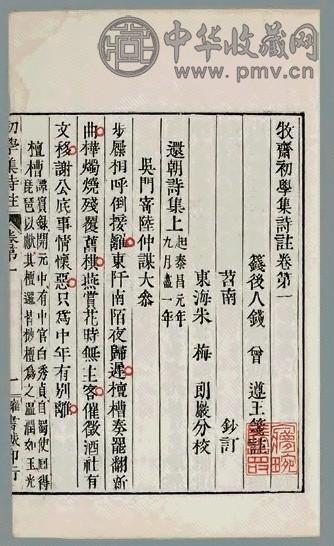 中华收藏网
www.pmv.cn
牧齋初學集詩註卷第一
籛後人錢 曾 遵王箋註
苕南 鈔訂
東海朱 梅 朗巖分校
還朝詩集上 起泰昌元年
九月盡一年
吳門寄陸仲謀大叅
步屧相呼倒接䍦東阡南陌夜歸遲檀槽奏罷翻新
曲樺燭燒殘覆舊棋燕賞花時無主客催徵酒社有
文移謝公底事情懷惡只爲中年有別離
檀槽 譚賓錄開元中有中官白秀貞自蜀使囘得
琵琶以獻其槽邏皆杪檀爲之溫潤如玉光
初學集詩註 卷第一 一